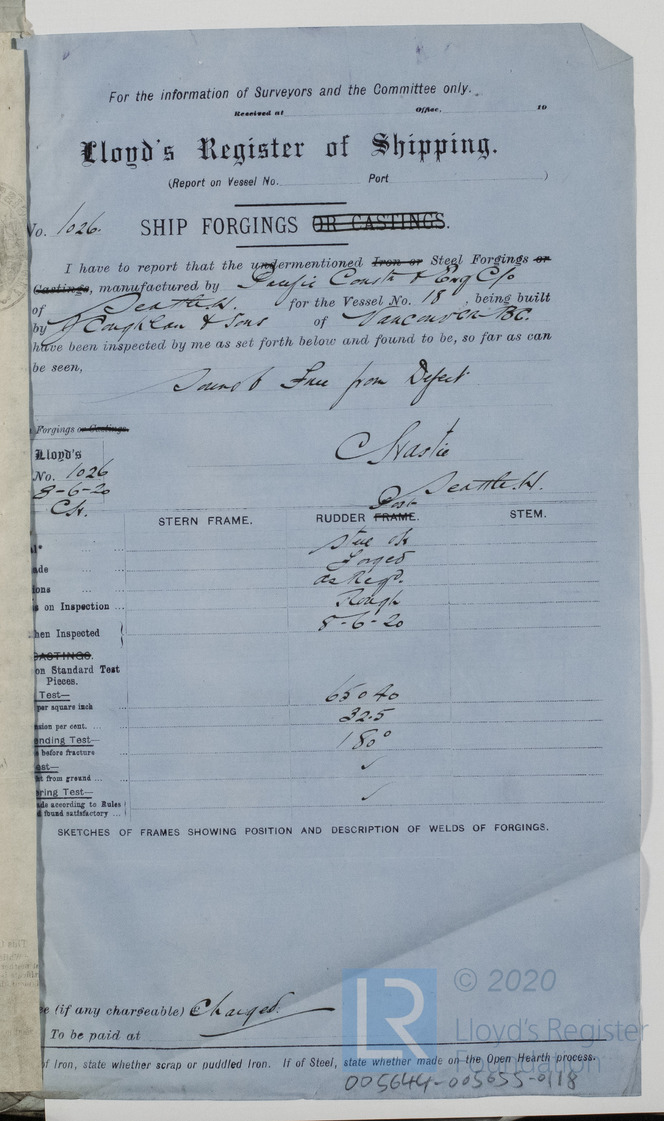 For the information of Surveyors and the Committee only.
Received at Office. 19
Lloyd's Register of Shipping.
(Report on Vessel No. Port )
No. 1026. SHIP FORGINGS OR CASTINGS.
I have to report that the undermentioned Iron or Steel Forgings or
Castings, manufactured by Pacific Const & Eng C/o
of Seattle W. for the Vessel No. 18, being built
by J Coughlan & Sons of Vancouver BC.
have been inspected by me as set forth below and found to be, so far as can
be seen,
Sound & Free from Defect
Forgings or Castings.
Lloyd's
No. 1026
8-6-20
Seattle W.
Post
STERN FRAME. RUDDER FRAME. STEM.
Forged
as Reqd.
s on Inspection ... Rough
hen Inspected 8-6-20
CASTINGS.
on Standard Test
Pieces.
Test— 65040
per square inch
32.5
nsion per cent. ...
nding Test— 180°
s before fracture
est— ✓
t from ground ... ...
ring Test— ✓
de according to Rules
d found satisfactory ...
SKETCHES OF FRAMES SHOWING POSITION AND DESCRIPTION OF WELDS OF FORGINGS.
e (if any chargeable) Charged.
To be paid at
of Iron, state whether scrap or puddled Iron. If of Steel, state whether made on the Open Hearth process.
005644-005655-0118
LR © 2020
Lloyd's Register
Foundation